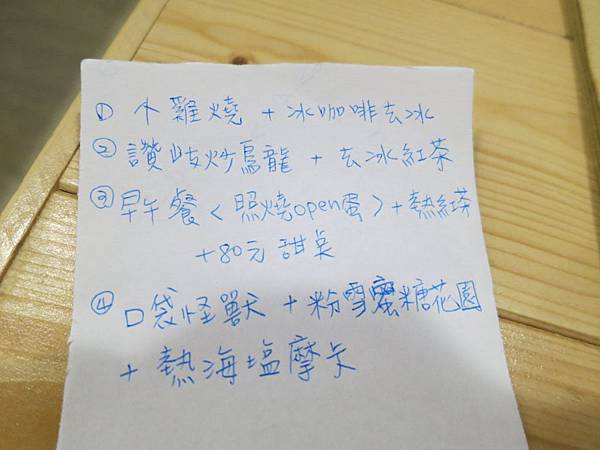 ① 个雞燒 + 冰咖啡去冰
② 讚岐炒烏龍 + 去冰紅茶
③ 早午餐<照燒open蛋>+熱紅茶
+80元甜点
④ 口袋怪獸 + 粉雪蜜糖花園
+ 熱海塩摩卡